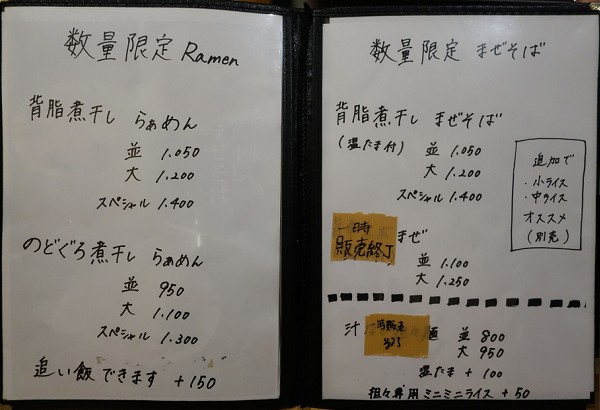 数量限定 Ramen
背脂煮干し らぁめん
並 1.050
大 1.200
スペシャル 1.400
のどぐろ煮干し らぁめん
並 950
大 1.100
スペシャル 1.300
追い飯できます +150
数量限定 まぜそば
背脂煮干し まぜそば
(温たま付) 並 1.050
大 1.200
スペシャル 1.400
追加で
・小ライス
・中ライス
オススメ
(別売)
一時
販売終了
まぜ
並 1.100
大 1.250
汁 麺 並 800
大 950
温たま + 100
担々専用ミニミニライス + 50